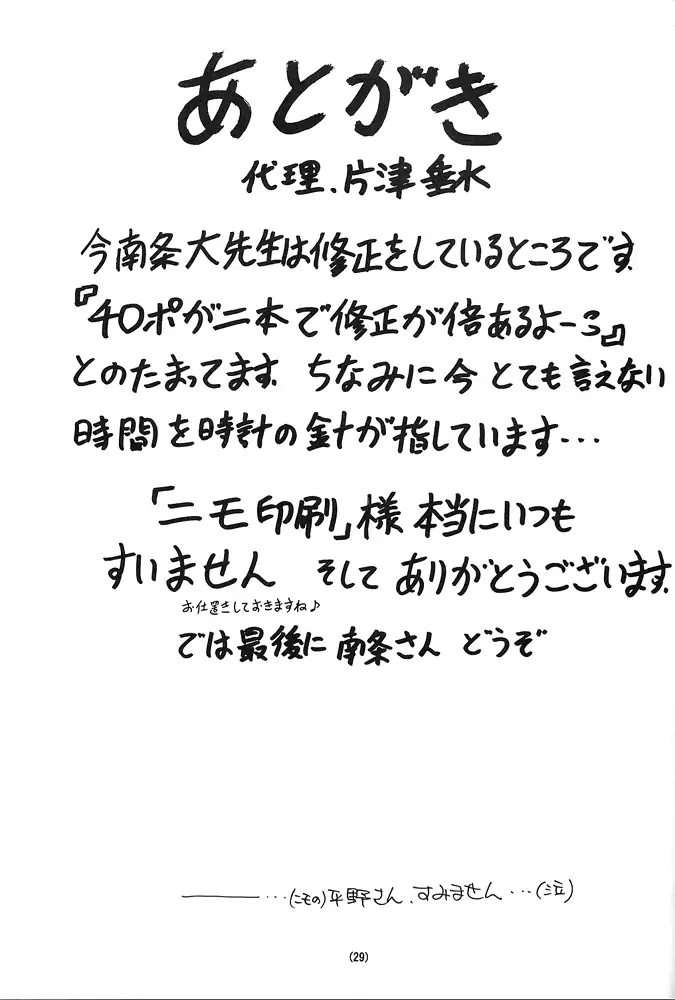 あとがき
代理、片津垂水
今南条大先生は修正をしているところです。
『チOポが二本で修正が倍あるよーう』
とのたまってます。ちなみに今とても言えない
時間を時計の針が指しています…
「ニモ印刷」様本当にいつも
すいません そして ありがとうございます。
お仕置きしておきますね♪
では最後に南条さん どうぞ
———…(ニモの)平野さん、すみません…(泣)
(29)